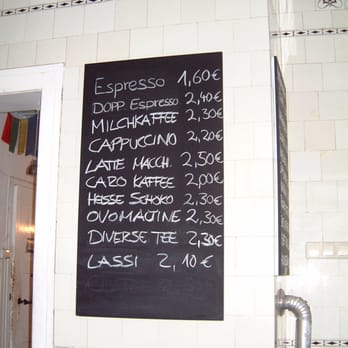 Espresso 1,60€
DOPP Espresso 2,40€
MILCHKAFFEE 2,30€
CAPPUCCINO 2,20€
LATTE MACCH. 2,50€
CARO KAFFEE 2,00€
HEISSE SCHOKO 2,30€
OVOMALTINE 2,30€
DIVERSE TEE 2,30€
LASSI 2,10€